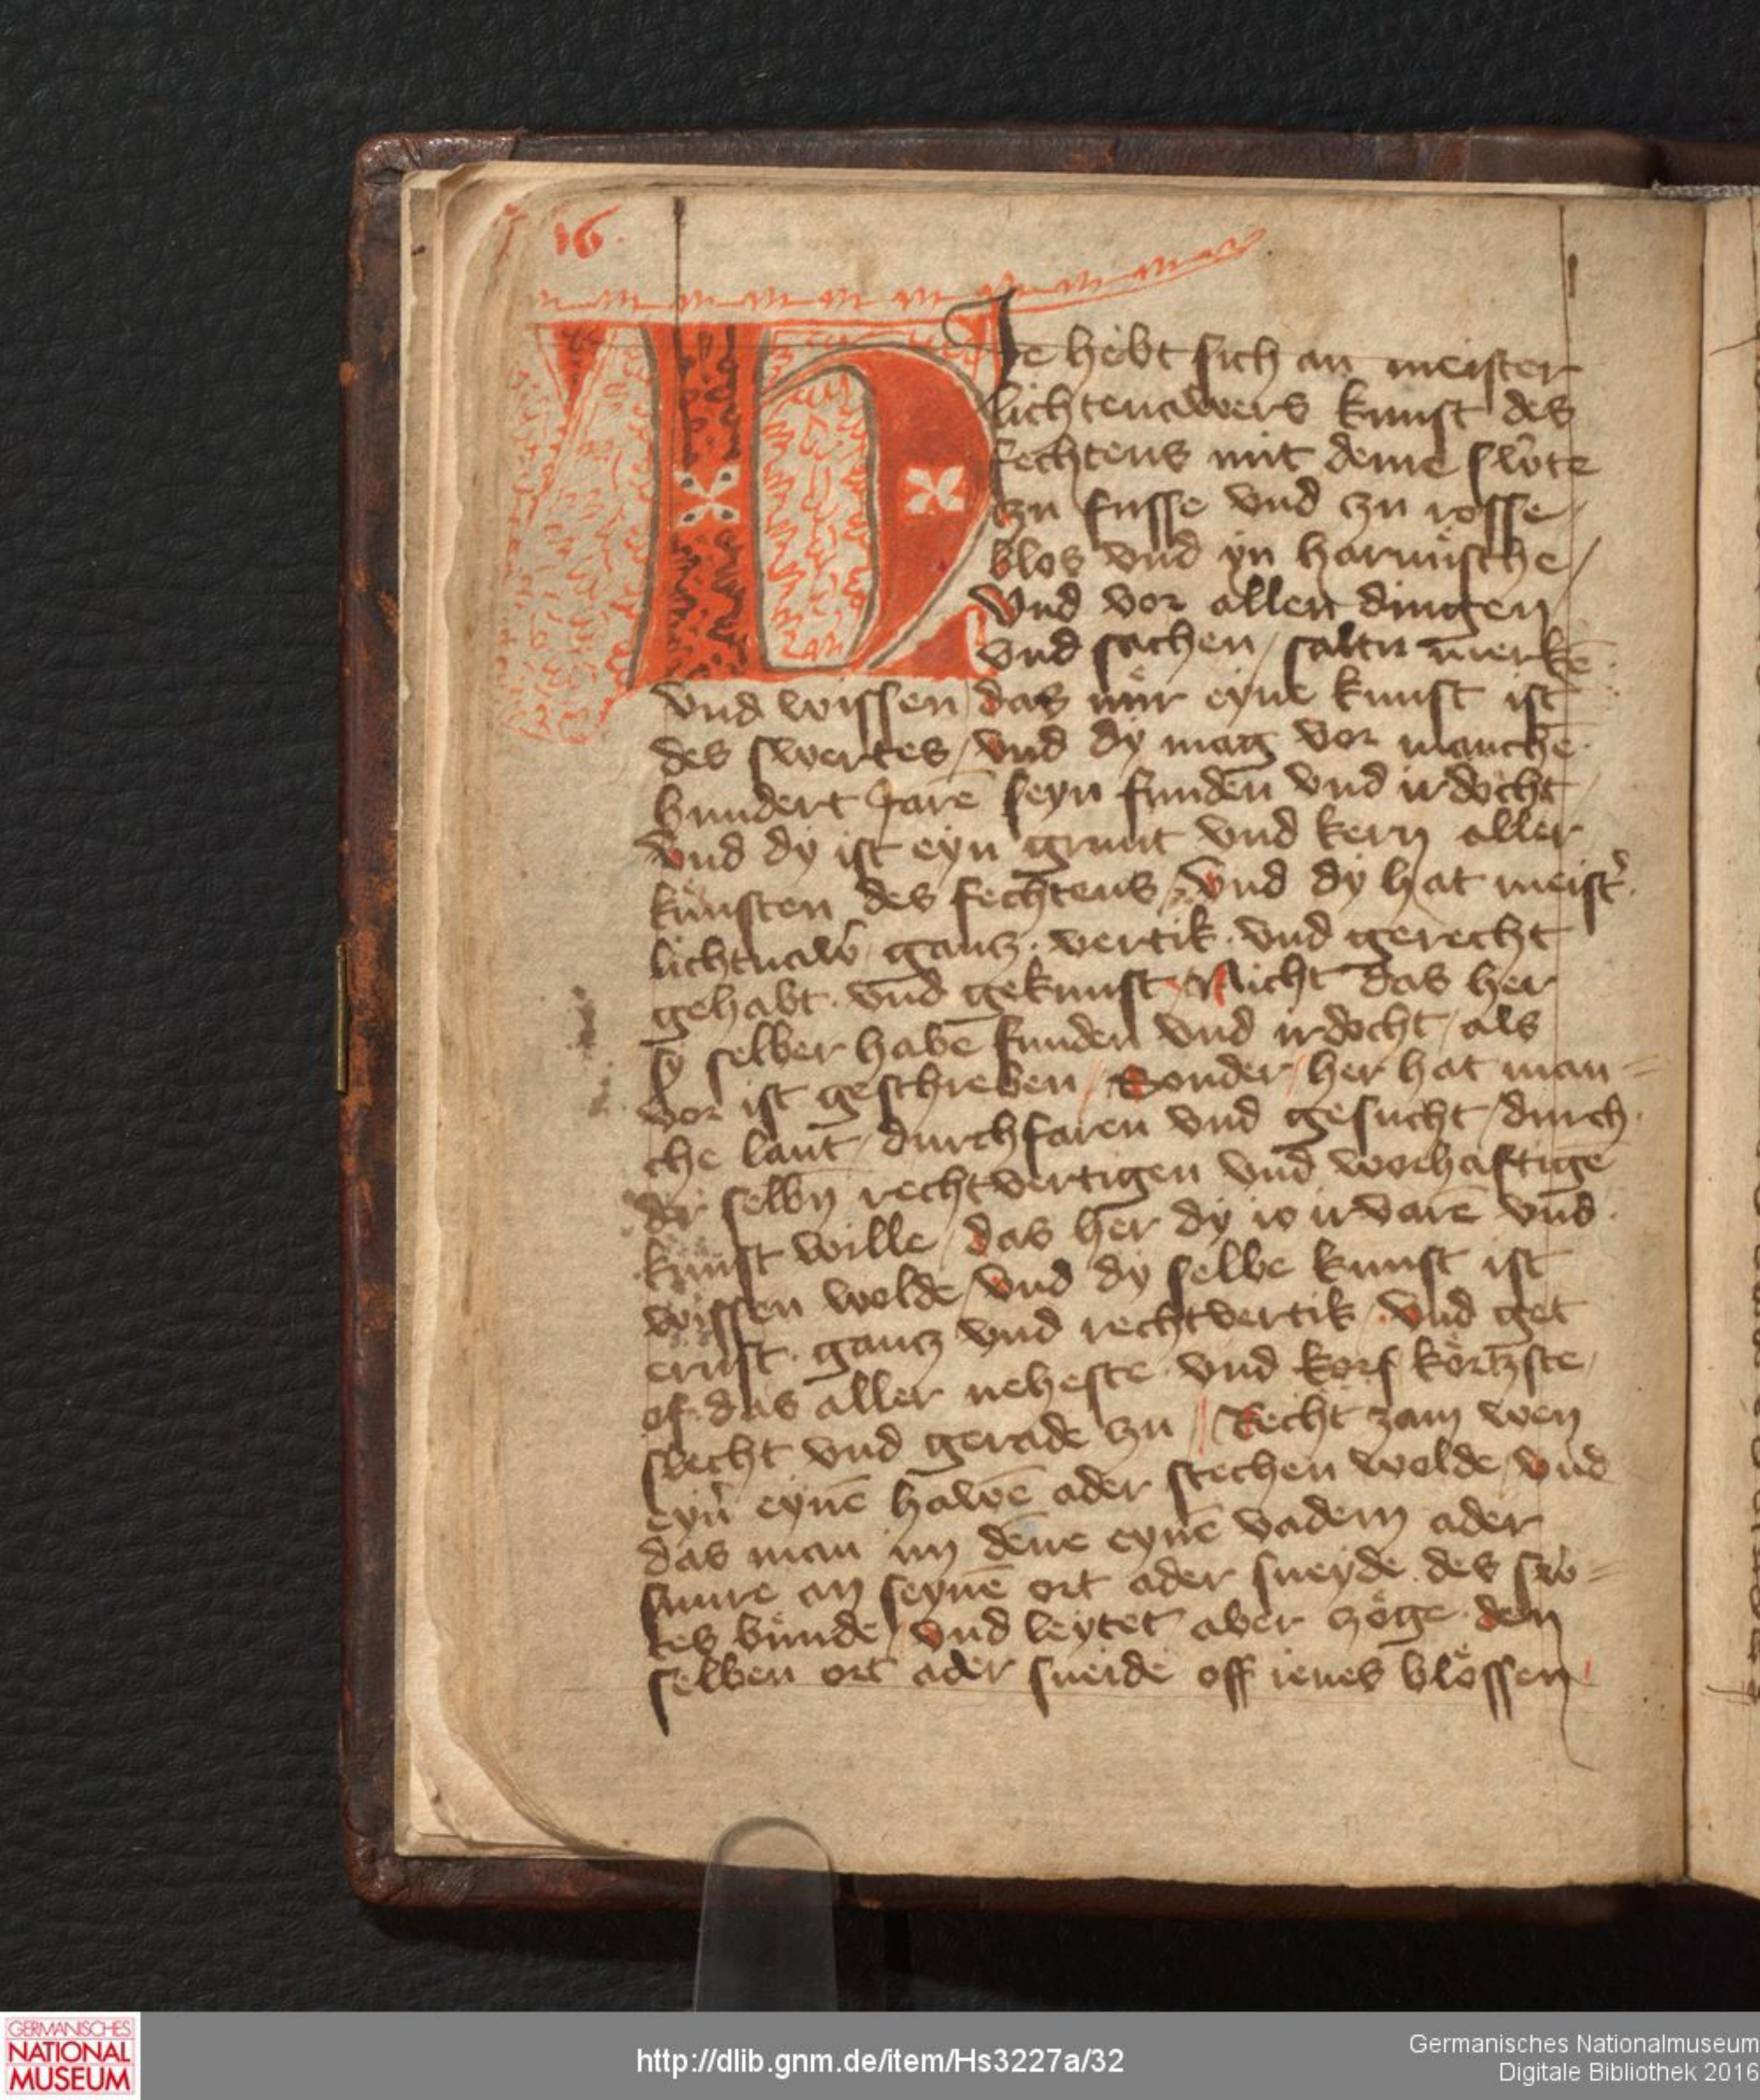 16.
HIe hebt sich an meister
lichtenawers kunst des
fechtens mit deme sw̉te
czu fusse vnd czu rosse /
blos vnd yn harnüsche /
Vnd vor allen dingen
vnd sachen / saltu merkē
vnd wissen / das nür eyne kunst ist
des swertes / vnd dy mag vor manchē
hundert Jarē seyn fundēn vnd irdocht
vnd dy ist eyn grunt vnd kern aller
künsten des fechtens / vnd dy hat meist̉
lichtnaw̉ gancz · vertik · vnd gerecht
gehabt · vnd gekunst / Nicht das her
sy selber habē funden vnd irdocht / als
vor ist geschreben / Sonder / her hat man=
che lant / durchfaren vnd gesucht / durch
der selbn̄ rechtvertigen vnd worhaftigē
kunst wille / das her dy io irvarē vnd
wissen welde / vnd dy selbe kunst ist
ernst · gancz vnd rechtvertik / Vnd get
of das aller neheste vnd korſ körtzste /
slecht vnd gerade czu // Recht zam wen
eyn̉ eynē hawē ader stechen welde / vnd
das man im deñe eynē vadem ader
snure an seynē ort ader sneyde des sw̉=
tes bünde / vnd leytet aber czöge · den
selben ort ader sneide off ienes blössen /
GERMANISCHES
NATIONAL
MUSEUM
http://dlib.gnm.de/item/Hs3227a/32
Germanisches Nationalmuseum
Digitale Bibliothek 2016